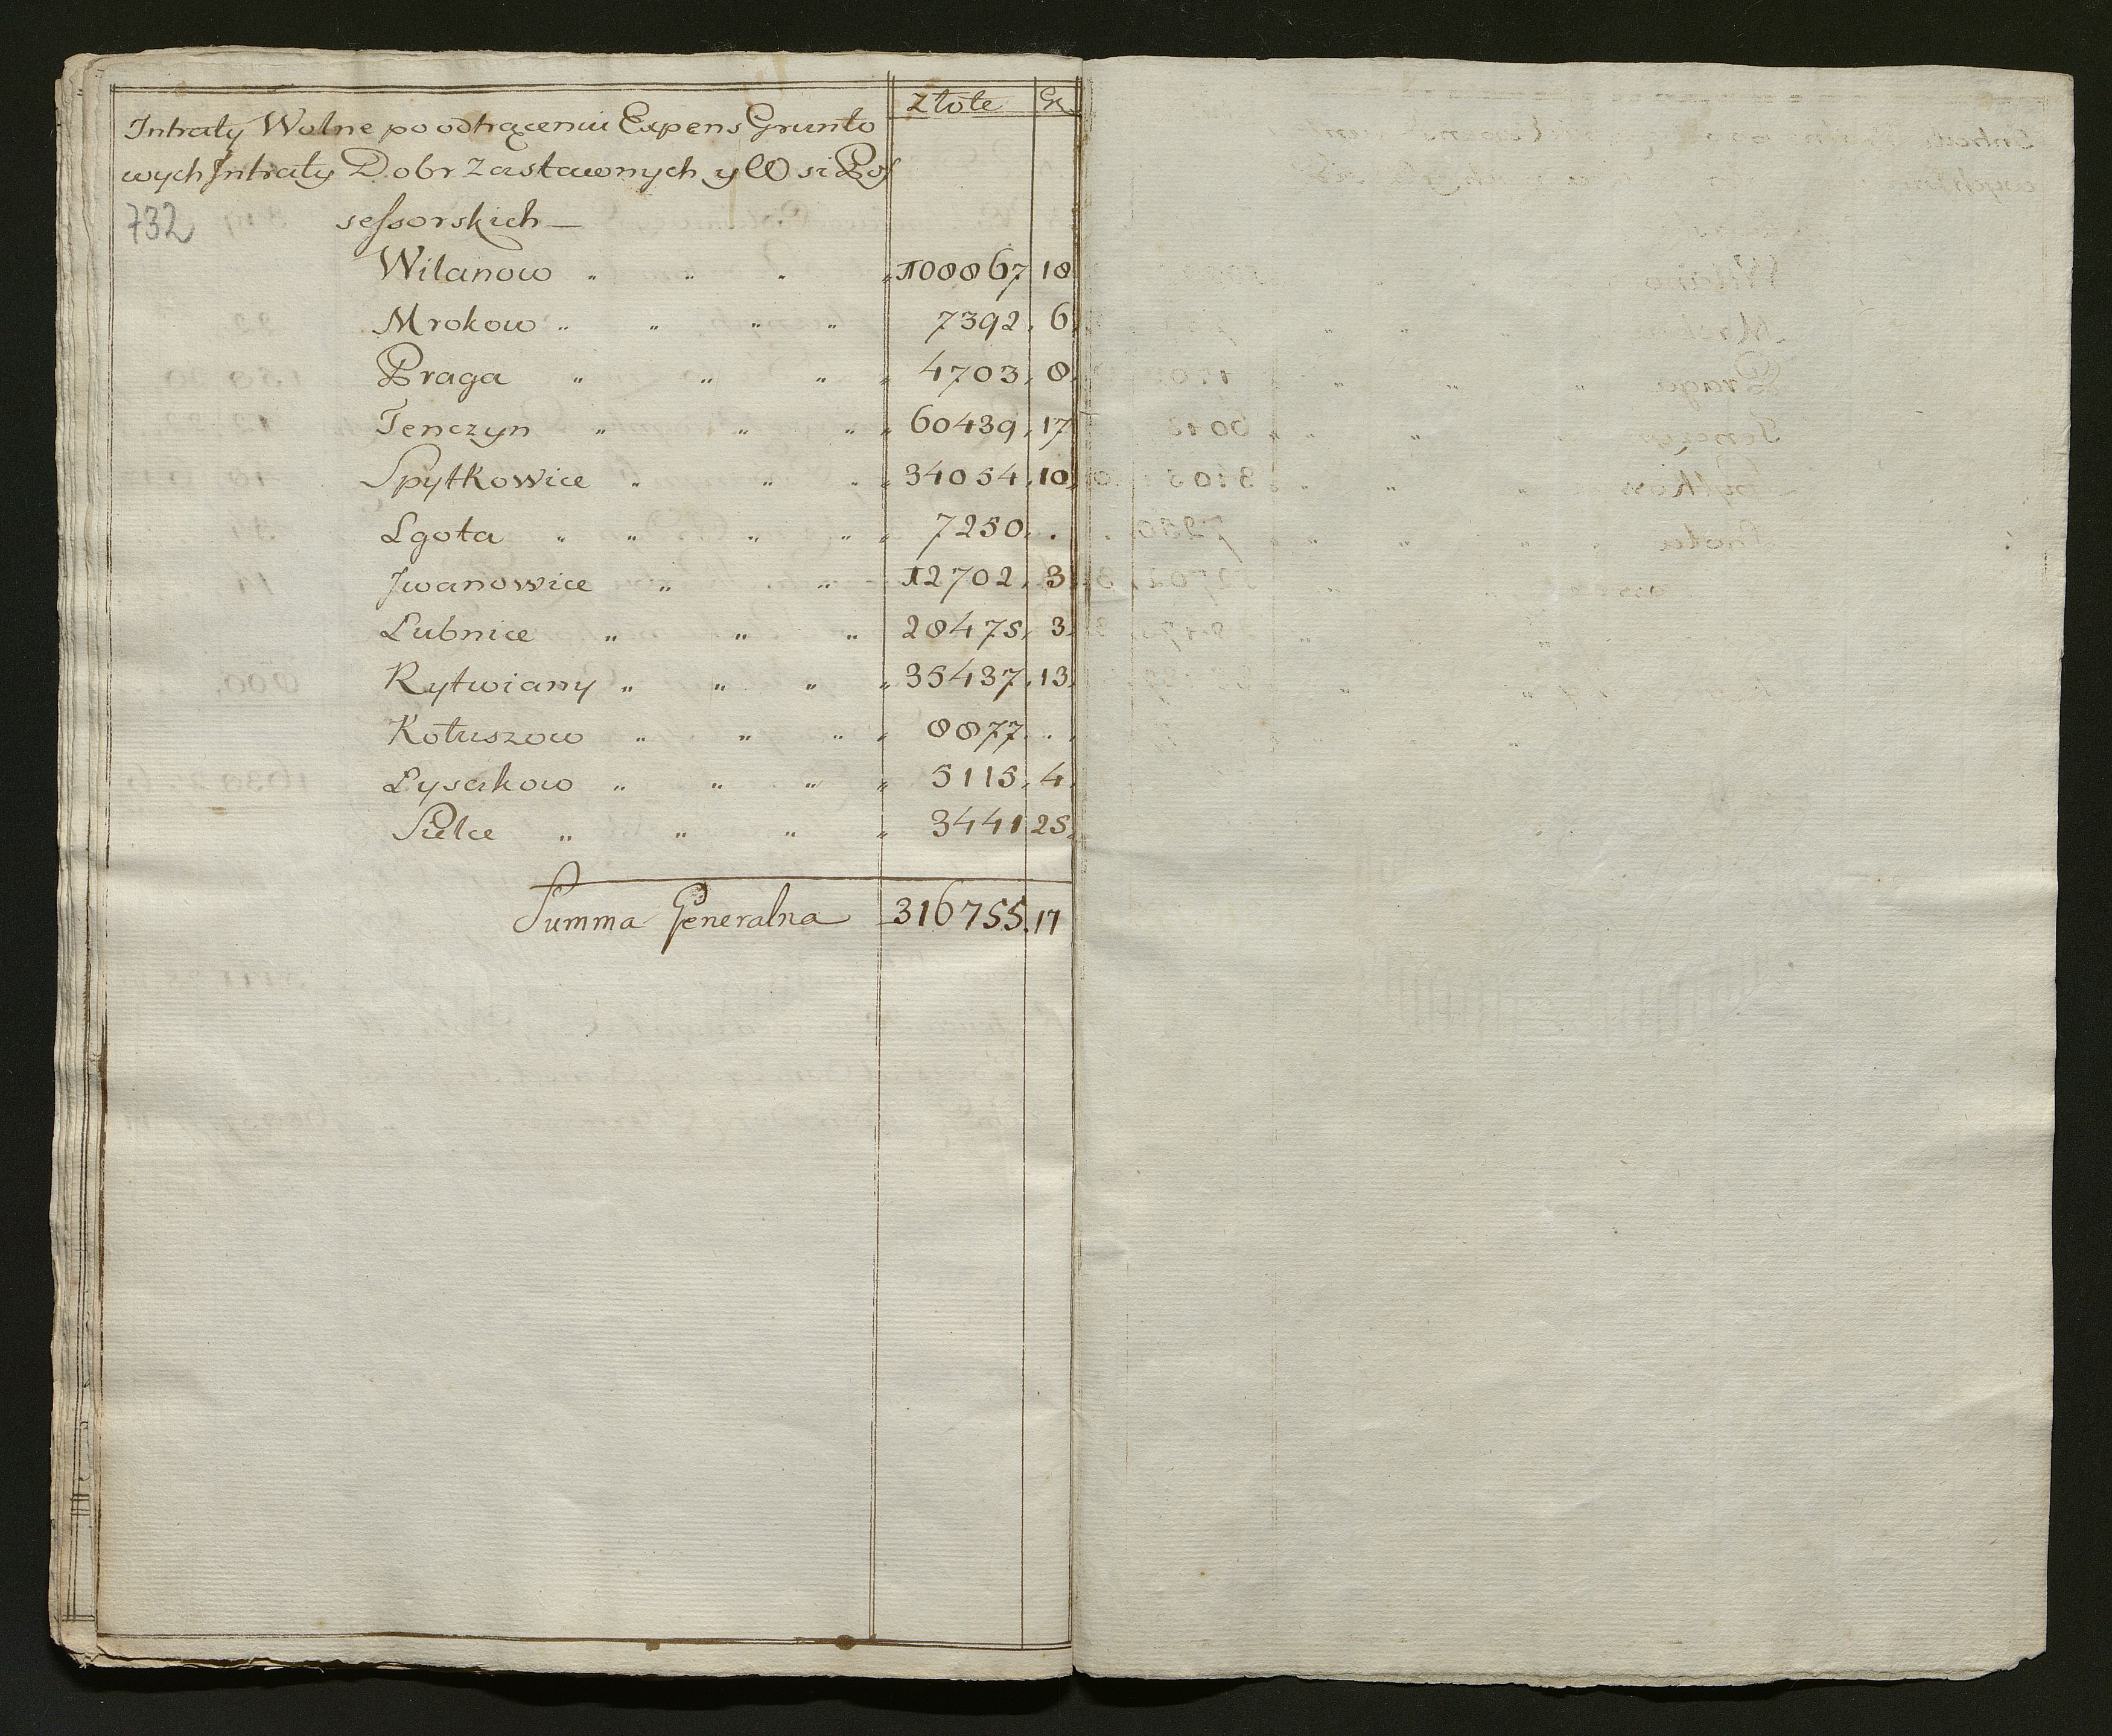 Złote Gr.
Intraty Wolne po odtrąceniu Expens Grunto
wych Intraty Dobr Zastawnych y Wsi Pos
sessorskich—
732
Wilanow " " " " 108867 18
Mrokow " " " " 7392. 6
Praga " " " " 4703. 8
Tenczyn " " " " 60439. 17
Spytkowice " " " " 34054. 10
Lgota " " " " " 7250. .
Iwanowice " " 12702. 3
Łubnice " " " 28475. 3
Rytwiany " " " " 35437. 13
Kotuszow " " " " 8877. .
Łysakow " " " " 5115. 4
Sielce " " " " 3441 25
Summa Generalna 316755. 17